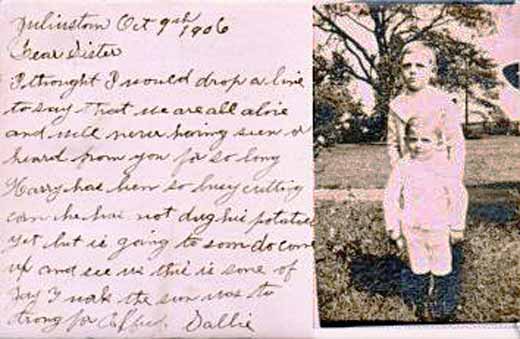 Julinstom Oct 9th 1906
Dear Sister
I thought I would drop a line
to say that we are all alive
and well never having seen or
heard from you for so long
Harry has ben so busy cutting
corn he has not dug his potatoes
yet but is going to soon do come
up and see us this is some of
Jay I the sun was to
trong for Sallie